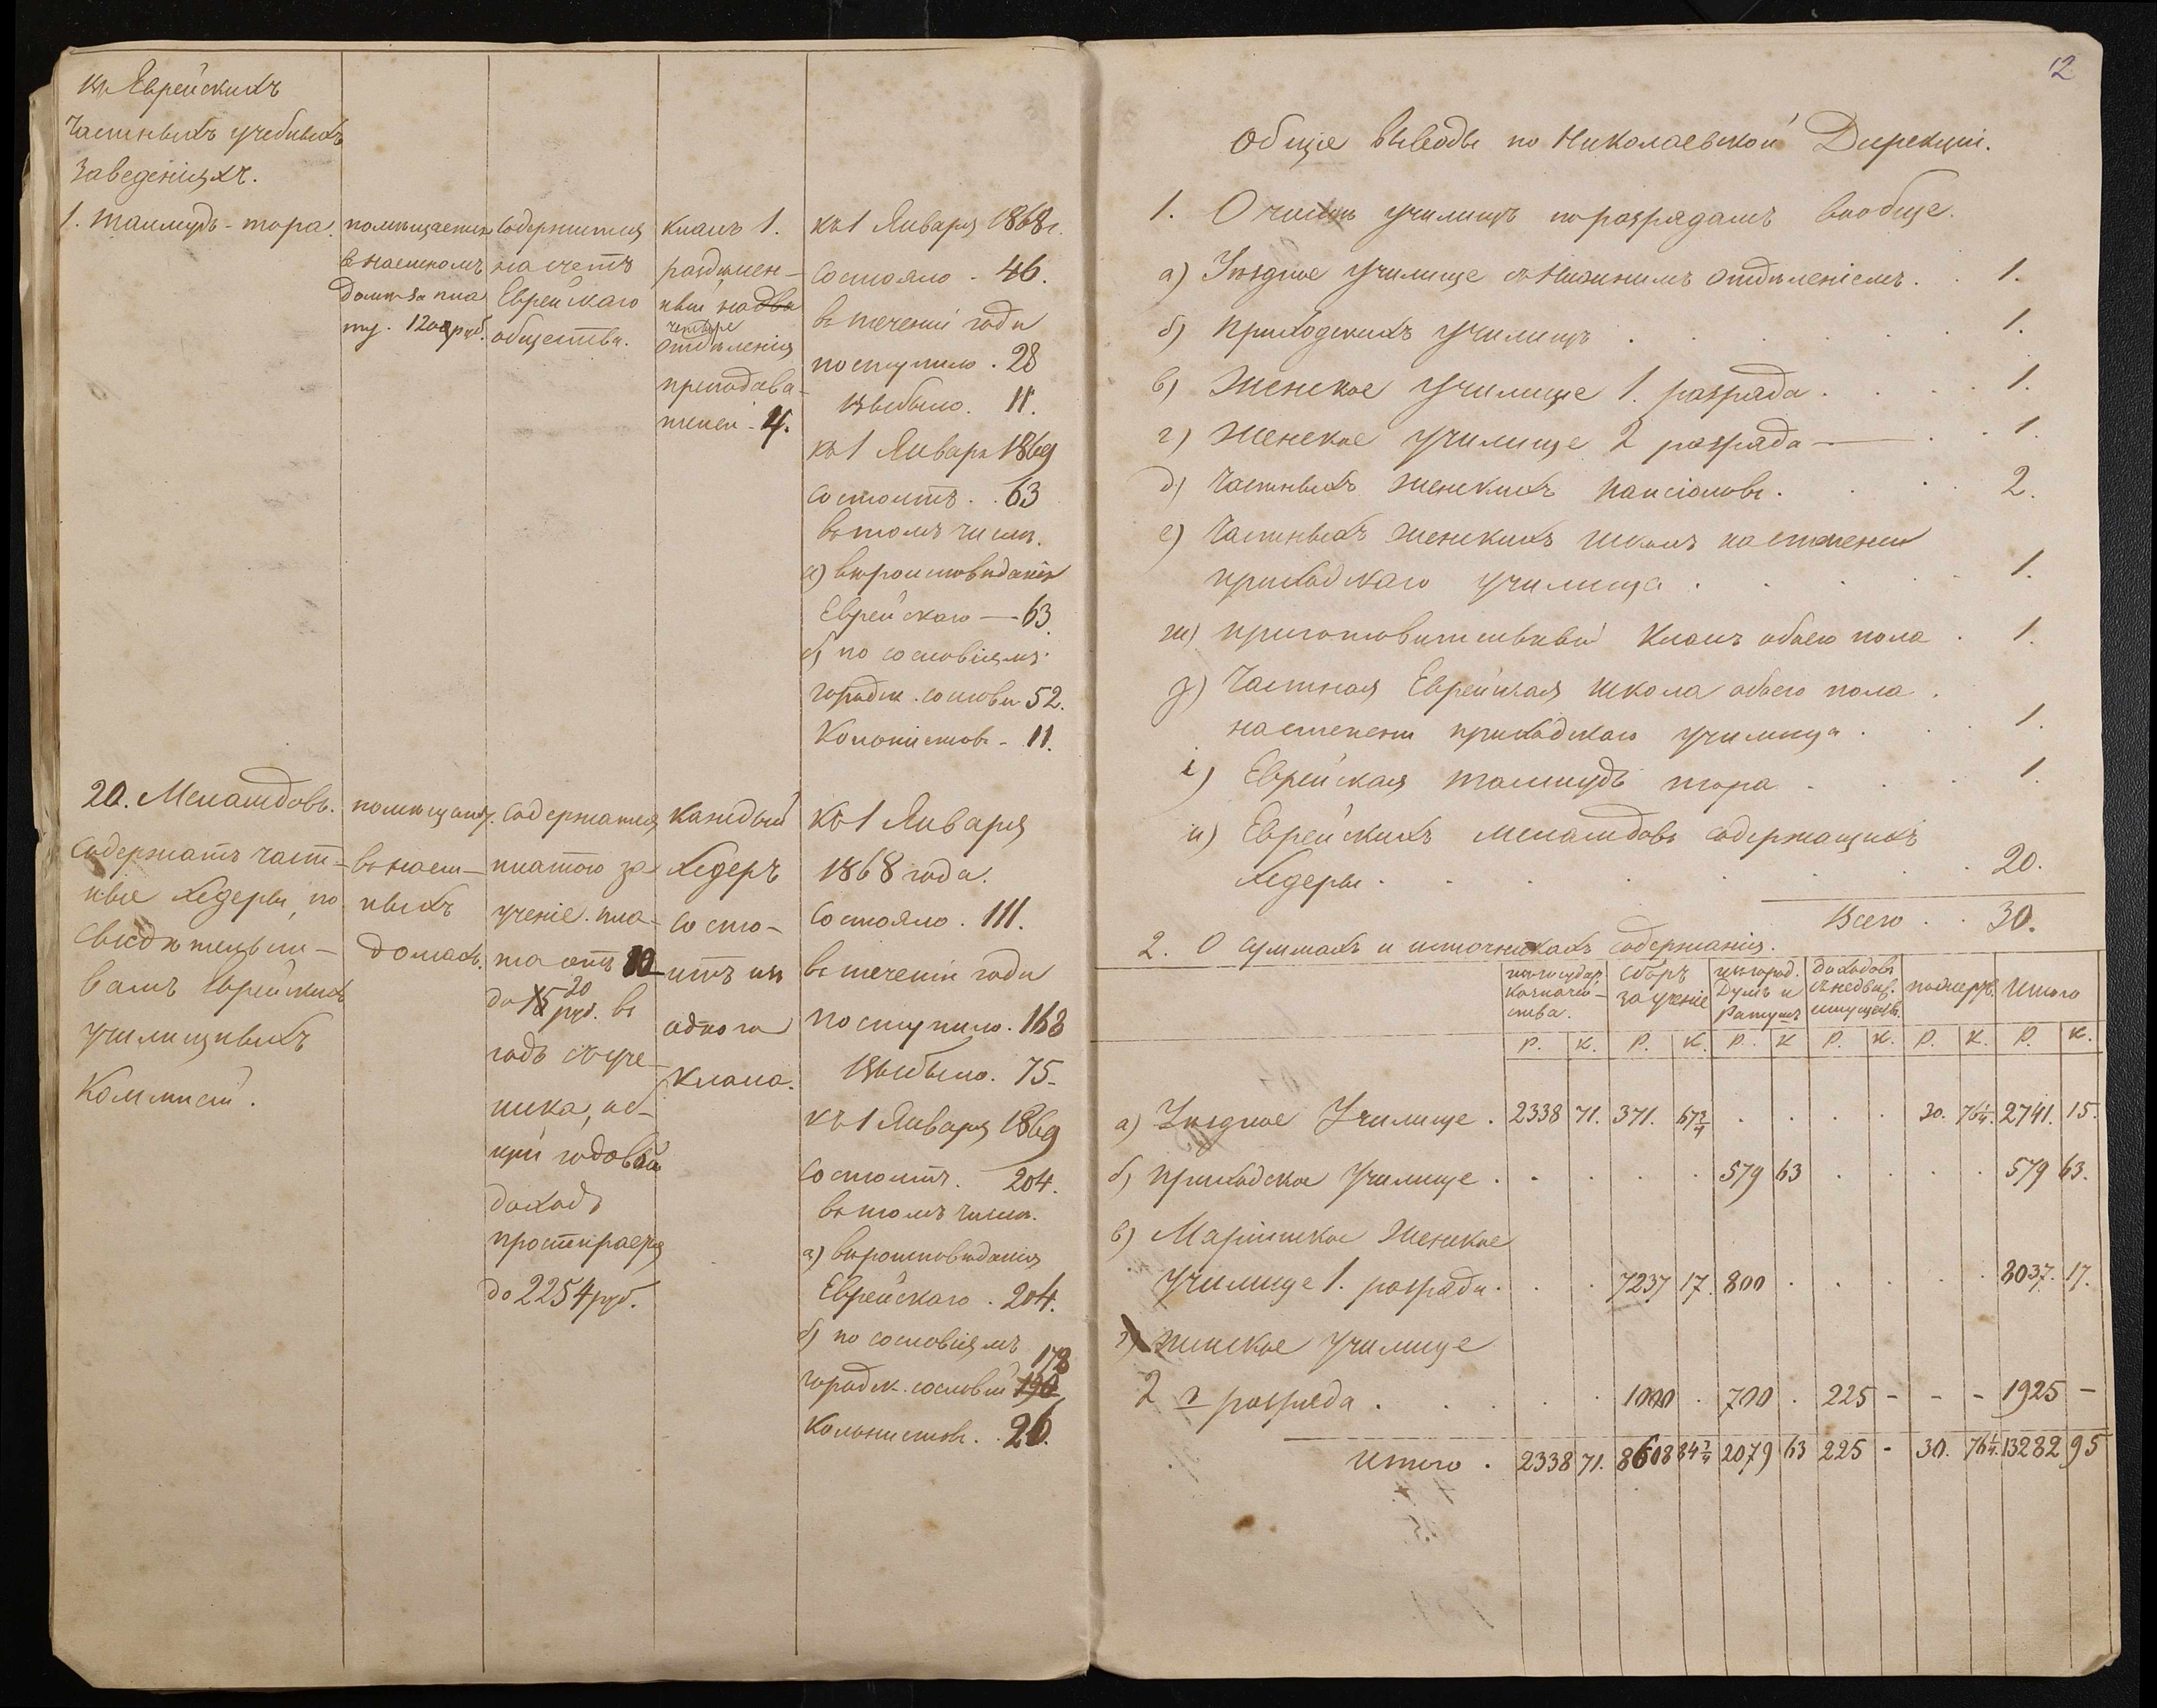 въ Еврейскихъ
частныхъ учебныхъ
заведеніяхъ.
1. Талмудъ-тора.
помѣщается
въ наемномъ
домѣ за пла
ту. 120 руб.
Содержится
на счетъ
Еврейскаго
общества.
Классъ 1.
раздѣлен-
ный на два
четыре
отдѣленія
преподава-
телей - 4.
къ 1 Января 1868 г.
состояло . 46.
въ теченіи года
поступило . 28
выбыло. 11.
къ 1 Января 1869
состоитъ . . 63
въ томъ числѣ.
а) вѣроисповѣданія
Еврейскаго — 63.
б) по сословіямъ:
городск. сословія 52.
Колонистовъ - 11.
20. Меламдовъ.
содержатъ част-
ные хедеры, по
свидѣтельст-
вамъ Еврейскихъ
училищныхъ
Коммисій.
помѣщают.
въ наем-
ныхъ
домахъ.
Содержатся
платою за
ученіе. пла-
та отъ 10
20
до 15 руб. въ
годъ съ уче-
ника, об-
щій годовой
доходъ
простирается
до 2254 руб.
Каждый
хедеръ
состо-
итъ изъ
одного
класса.
Къ 1 Января
1868 года.
состояло . 111.
въ теченіи года
поступило. 168
Выбыло. 75-
къ 1 Января 1869
состоитъ. 204.
въ томъ числѣ.
а) вѣроисповѣданія
Еврейскаго . 204.
б) по сословіямъ
178
городск. сословій 190
Колонистовъ. . 26.
12
Общіе выводы по Николаевской Дирекціи.
1. О числѣ училищъ по разрядамъ вообще.
а) Уѣздное училище съ низшимъ отдѣленіемъ. . 1.
б) Приходскихъ училищъ . . . . . 1.
в) Женское училище 1. разряда . . . . 1.
г) Женское училище 2 разряда — . . 1.
д) Частныхъ женскихъ пансіоновъ. . . . 2.
е) Частныхъ женскихъ школъ на степени
приходскаго училища . . . . . 1.
ж) приготовительный Классъ обоего пола . 1.
з) Частная Еврейская школа обоего пола .
на степени приходскаго училища . . . 1.
і) Еврейская талмудъ тора . . . 1.
и) Еврейскихъ меламдовъ содержащихъ
Хедеры . . . . . . . . 20.
Всего . . 30.
2. О суммахъ и источникахъ содержанія.
изъ государ. казначейства. Сборъ за ученіе изъ город. Думъ и Ратушъ доходовъ съ недвиж. имуществъ. пожертв. Итого
Р. К. Р. К. Р. К Р. К. Р. К. Р. К.
а) Уѣздное Училище . 2338 71. 371. 67 3/4 . . . . 30. 76 1/4. 2741. 15.
б) приходское Училище . . . . . 579 63 . . . . 579 63.
в) Маріинское Женское
Училище 1. разряда . . . 7237 17. 800 . . . . . 8037. 17.
г) женское училище
2 го разряда . . . . . 1000 . 700 . 225 - - - 1925 -
Итого . 2338 71. 8608 84 3/4 2079 63 225 - 30. 76 1/4. 13282 95